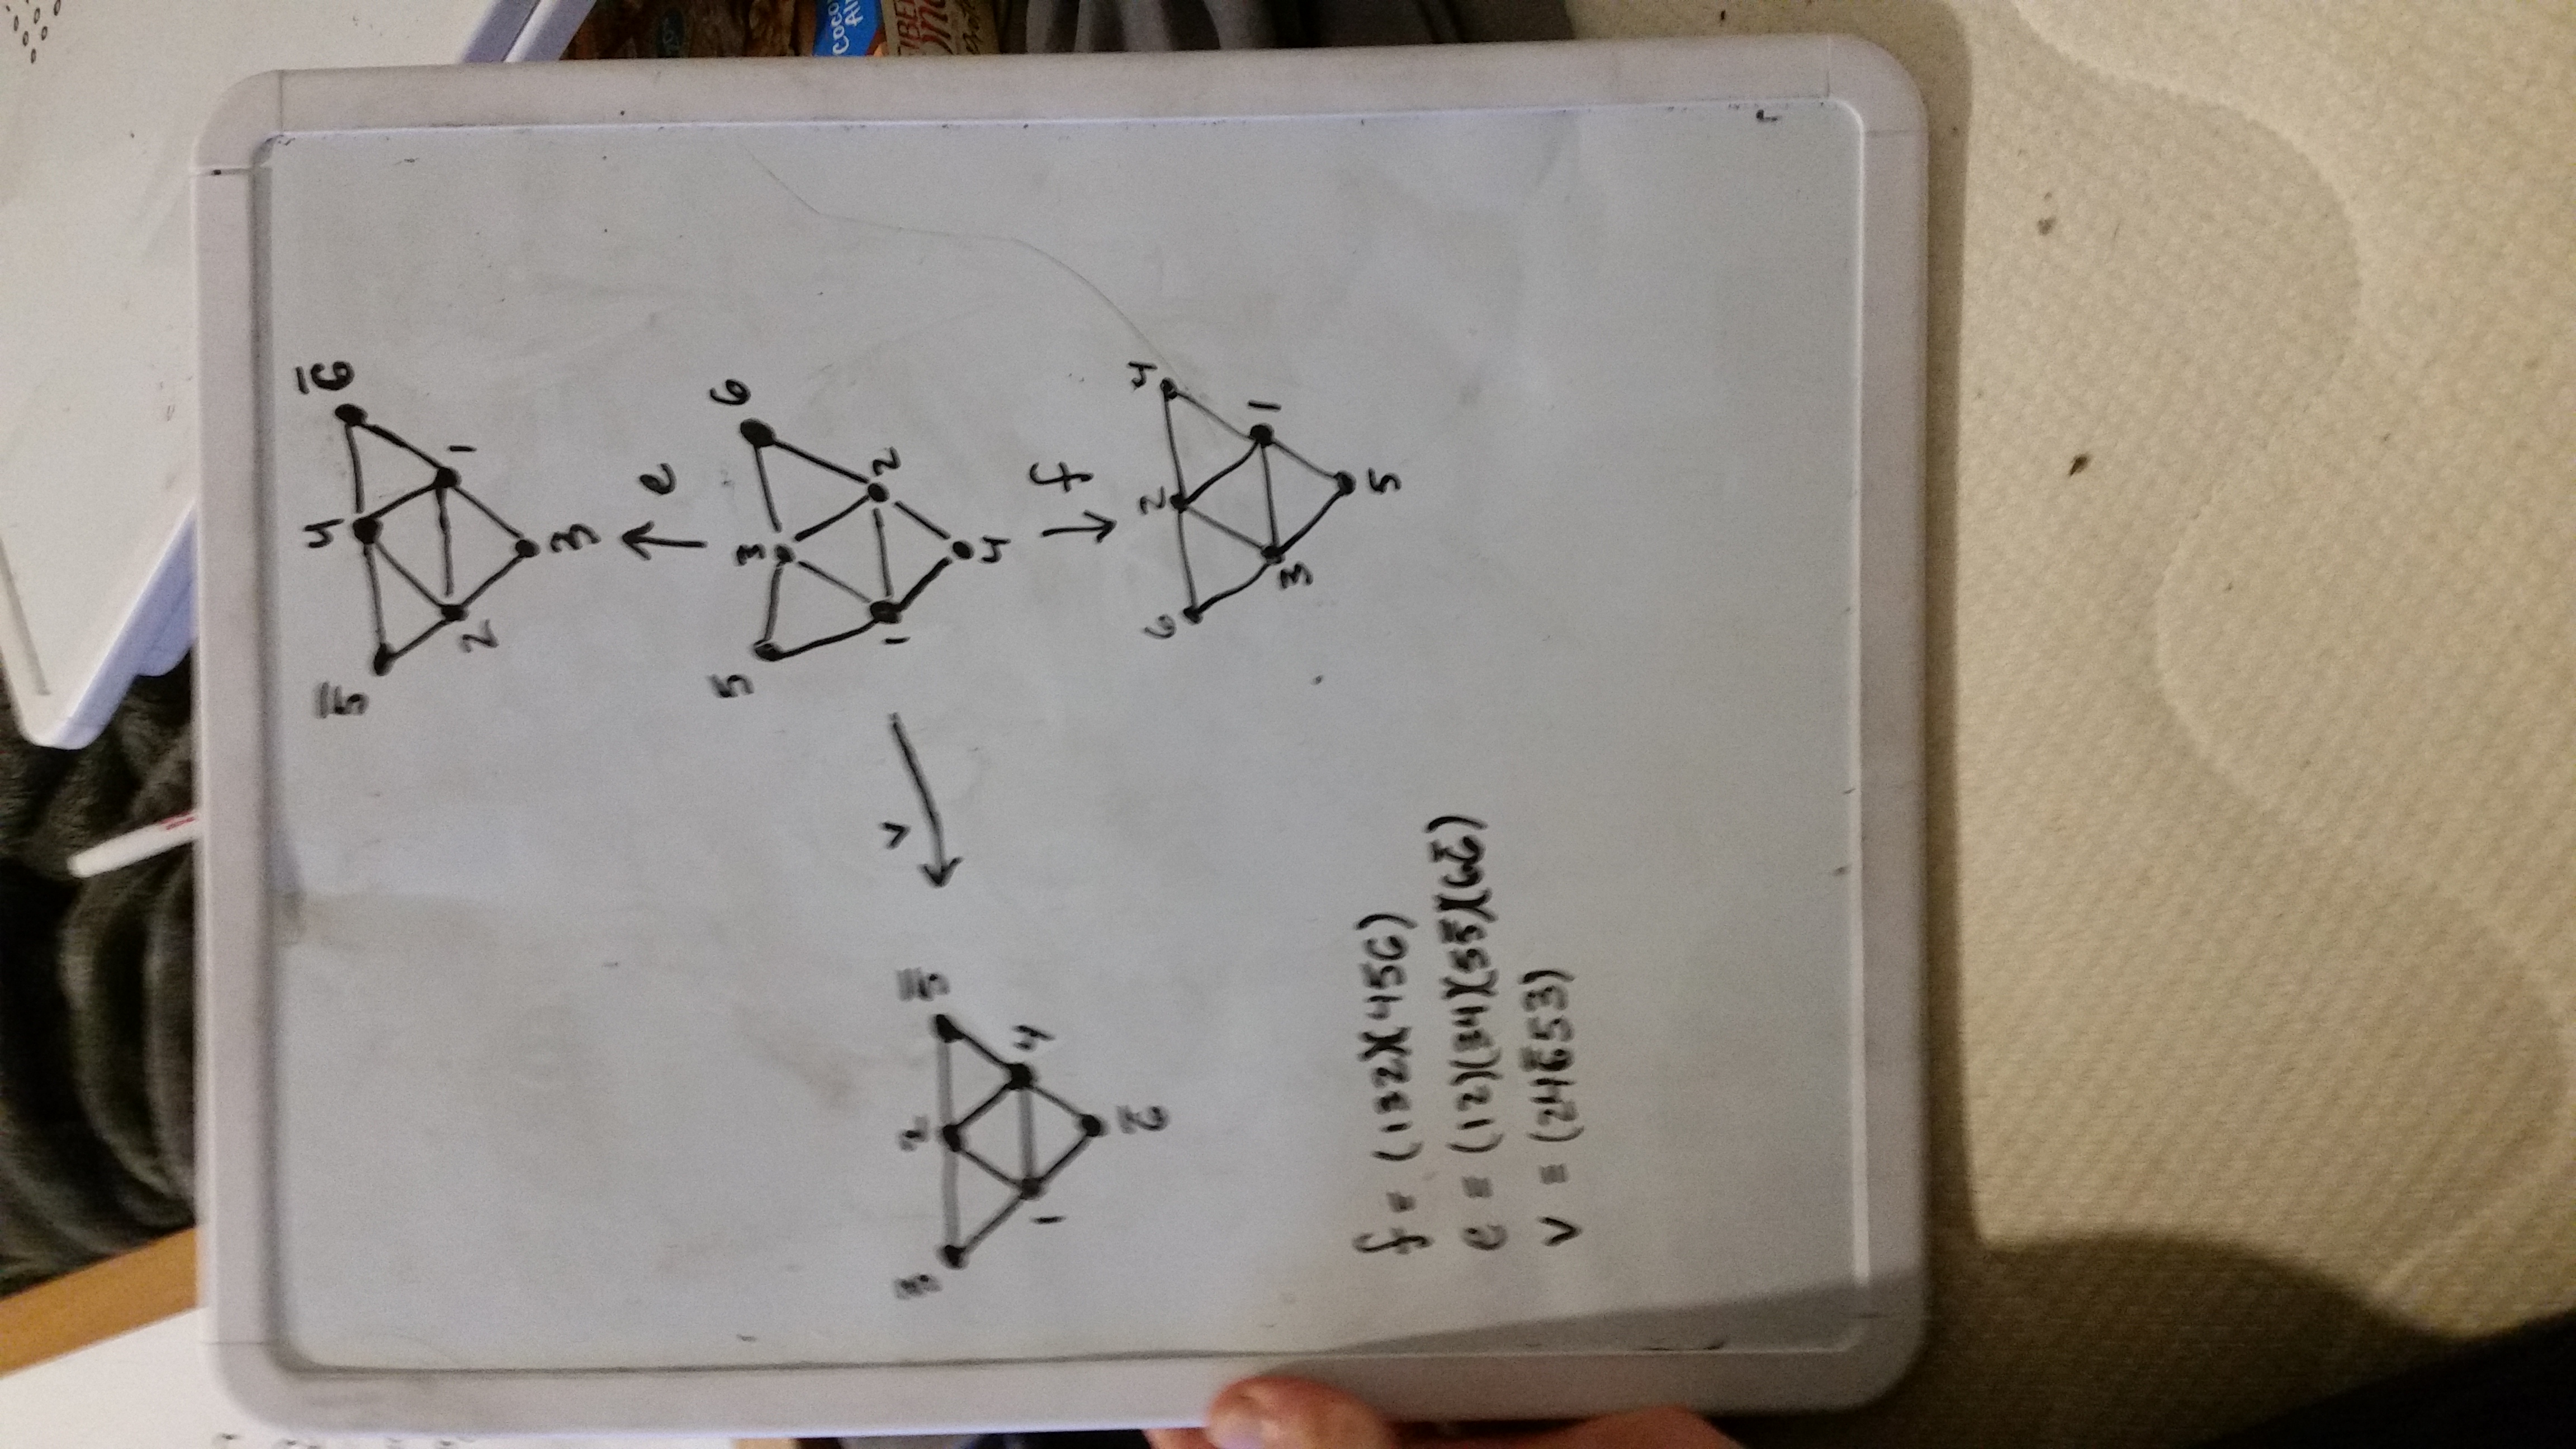 5̅ 4 6̅
2 1
3
e
5 3 6
1 2
4
v
3 2 5̅
1 4
6̅
f
6 2 4
3 1
5
f = (132)(456)
e = (12)(34)(55̅)(66̅)
v = (246̅53)
COCO